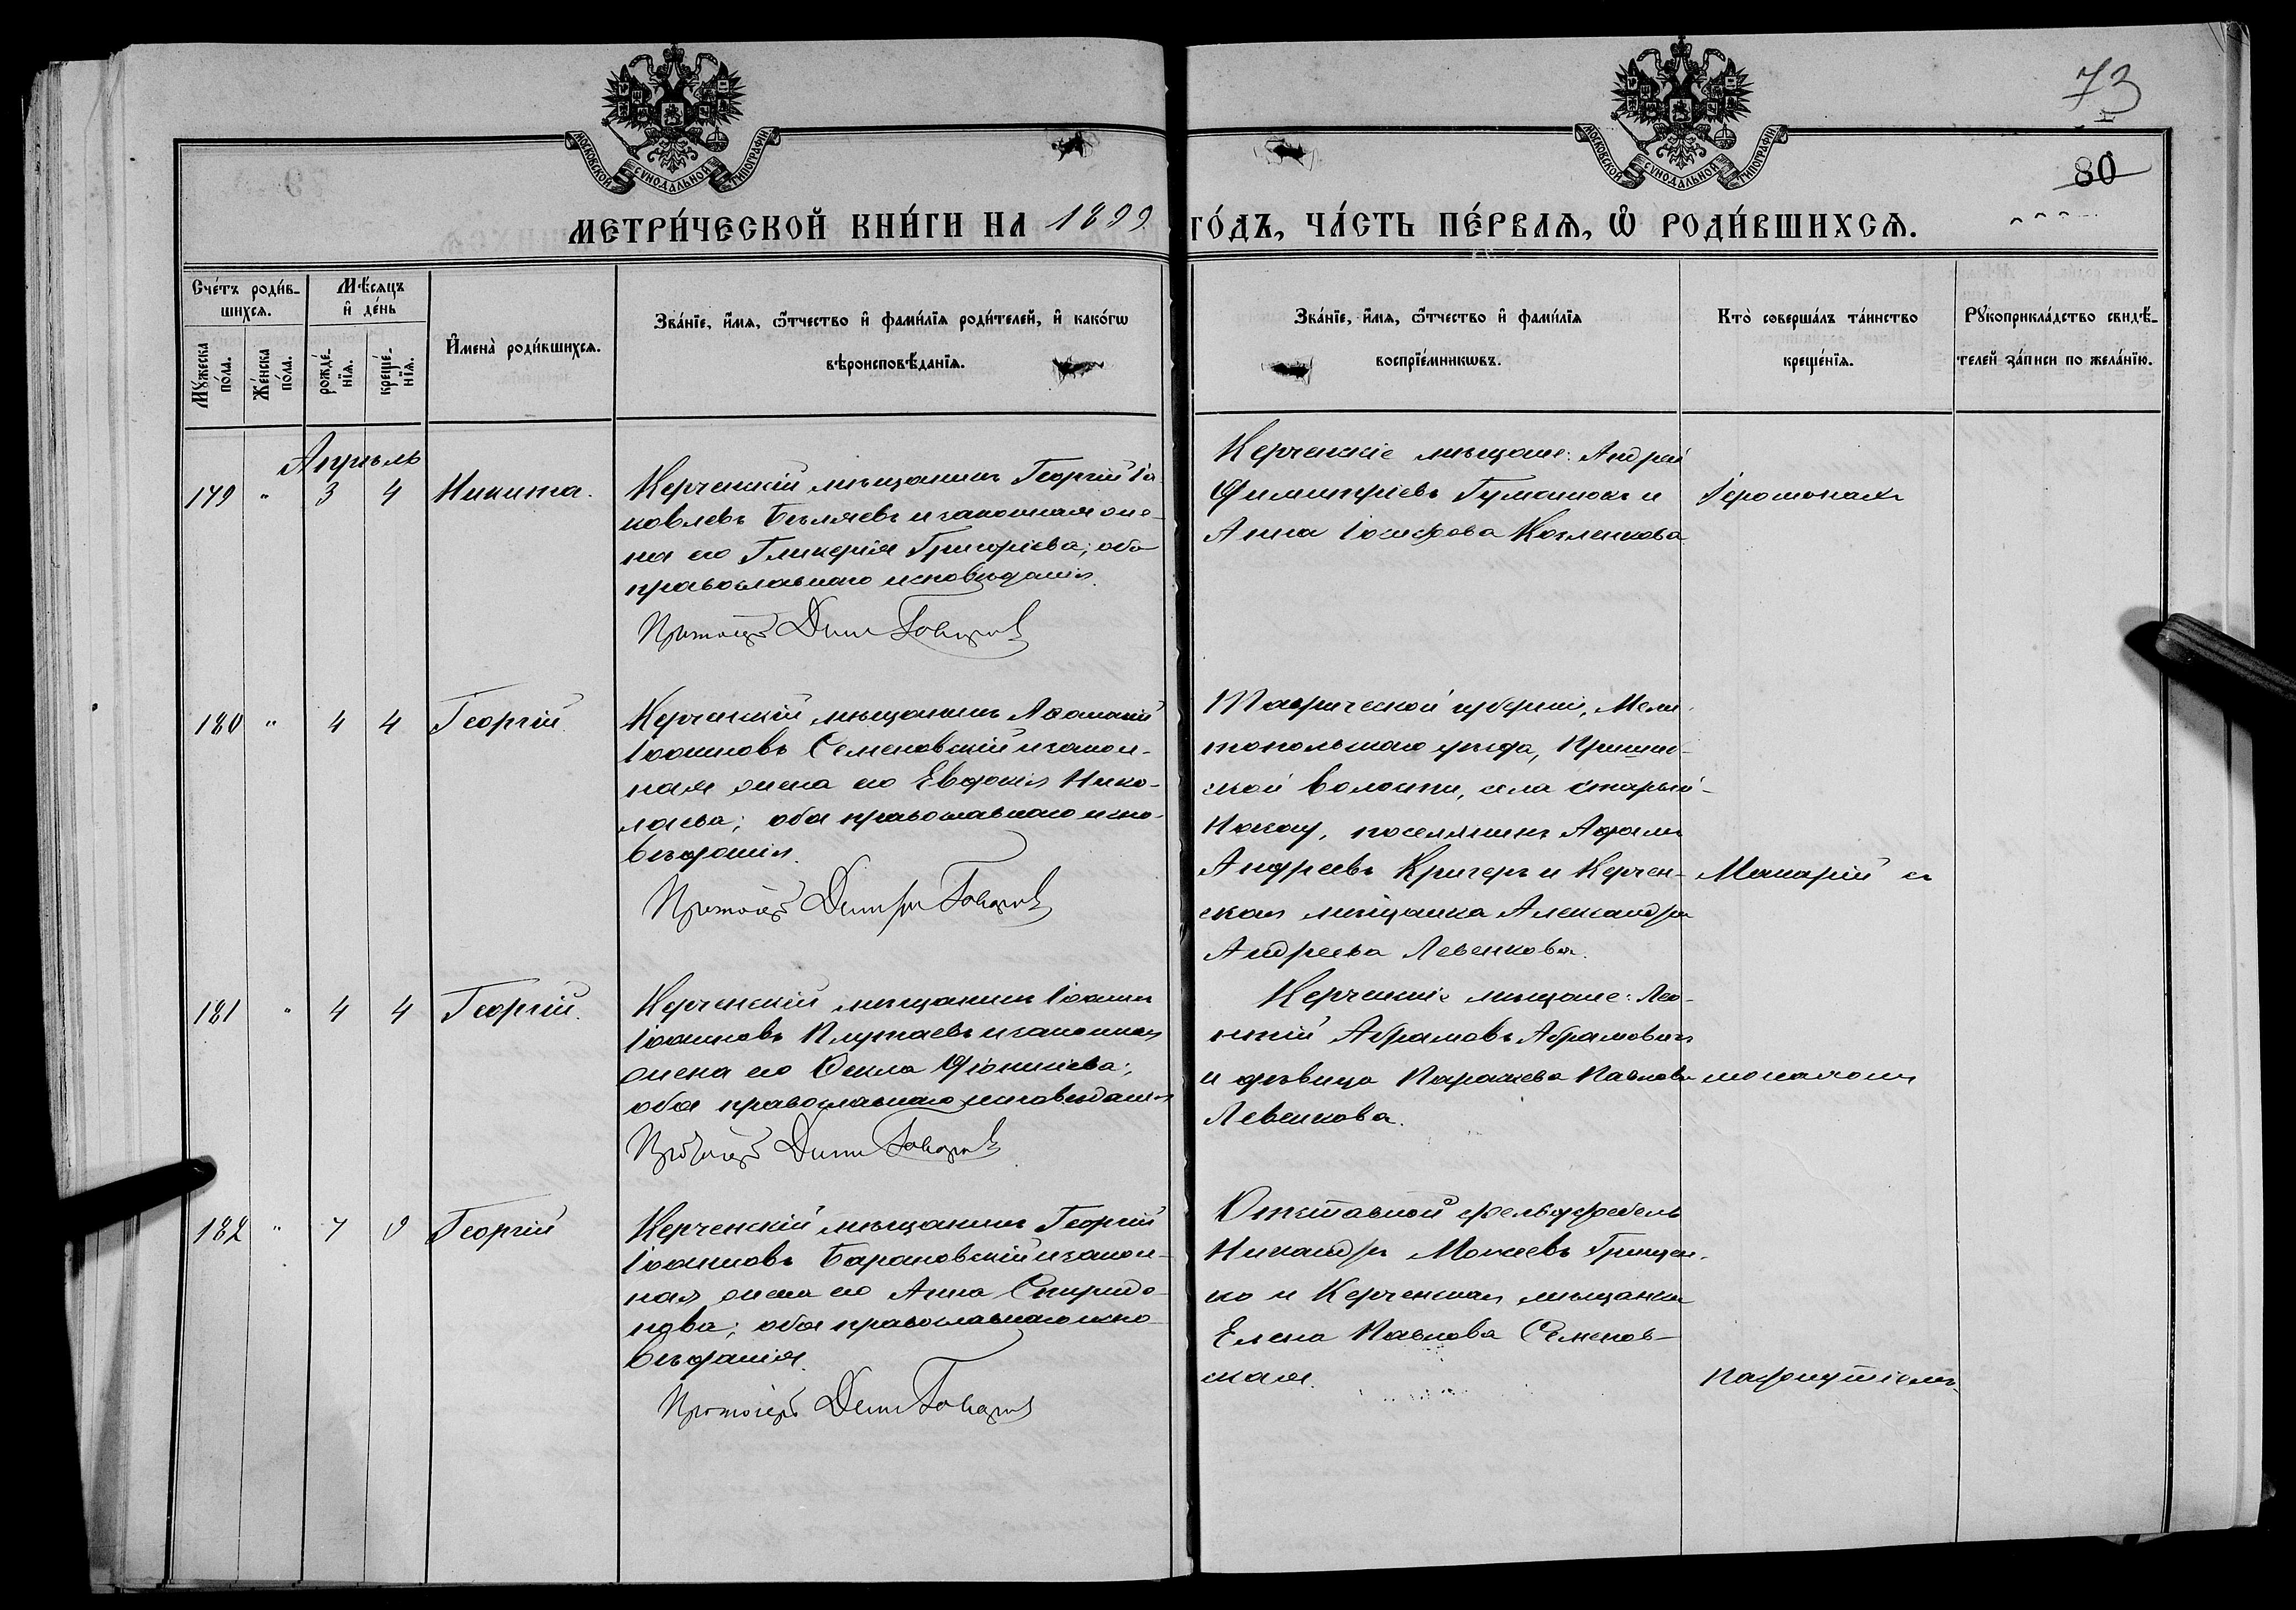 МОСКОВСКОЙ СУНОДАЛЬНОЙ ТИПОГРАФІИ
МОСКОВСКОЙ СУНОДАЛЬНОЙ ТИПОГРАФІИ
73
80
МЕТРИ́ЧЕСКОЙ КНИ́ГИ НА 1899 ГО́ДЪ, ЧА́СТЬ ПЕ́РВАѦ, Ѡ҆ РОДИ́ВШИХСѦ.
Сче́тъ роди́в-
шихсѧ.
Мꙋжеска по́ла.
Же́нска по́ла.
Мѣ́сѧцъ
и҆ де́нь
рожде́-
нїѧ.
креще́-
нїѧ.
И҆мена̀ роди́вшихсѧ.
Зва́нїе, и҆́мѧ, ѻ҆́тчество и҆ фами́лїѧ роди́телей, и҆ како́гѡ
вѣроисповѣ́данїѧ.
Зва́нїе, и҆́мѧ, ѻ҆́тчество и҆ фами́лїѧ
воспрїе́мникѡвъ.
Кто̀ соверша́лъ та́инство
креще́нїѧ.
Рꙋкоприкла́дство свидѣ́-
телей за́писи по жела́нїю.
Апрѣль
179 " 3 4 Никита.
Керченскій мѣщанинъ Георгій Іа-
ковлевъ Бѣляевъ и законная же-
на его Гликерія Григорієва; оба
православнаго исповѣданія.
Протоіер Дим Говоров
Керченскіе мѣщане: Андрей
Димитріевъ Гуманюкъ и
Анна Іосифова
Іеромонахъ
180 " 4 4 Георгій.
Керченскій мѣщанинъ Аѳанасій
Іоанновъ Семеновскій и закон-
ная жена его Евдокія Нико-
лаева; оба православнаго испо-
вѣданія.
Протоіер Димитри Говоров
Таврической губерніи, Мели-
топольскаго уѣзда,
ской волости, села Старый-
поселянинъ Адамъ
Андреевъ Кригеръ и Керчен-
ская мѣщанка Александра
Андреева Левенкова.
Макарій съ
181 " 4 4 Георгій.
Керченскій мѣщанинъ Іоаннъ
Іоанновъ и законная
жена его Ѳекла Діонисіева;
оба православнаго исповѣданія
Протоіер Дим Говоров
Керченскіе мѣщане: Лео-
нтій Абрамовъ Абрамовичъ
и дѣвица Параскева Павлова
Левенкова.
монахомъ
182 " 7 8 Георгій
Керченскій мѣщанинъ Георгій
Іоанновъ Барановскій и закон-
ная жена его Анна Спиридо-
нова; оба православнаго испо-
вѣданія.
Протоіер Дим Говоров
Отставной фельдфебель
Никандръ Моисеевъ Грищен-
ко и Керченская мѣщанка
Елена Павлова Семенов-
ская.
Пафнутіемъ.